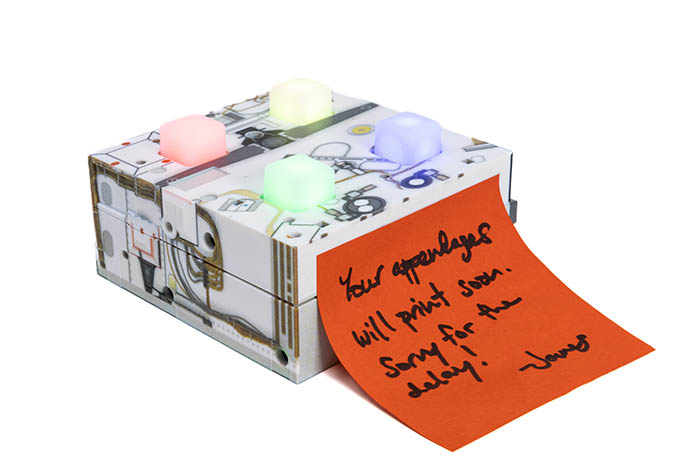 Your appendages
will print soon.
Sorry for the
delay!
-James